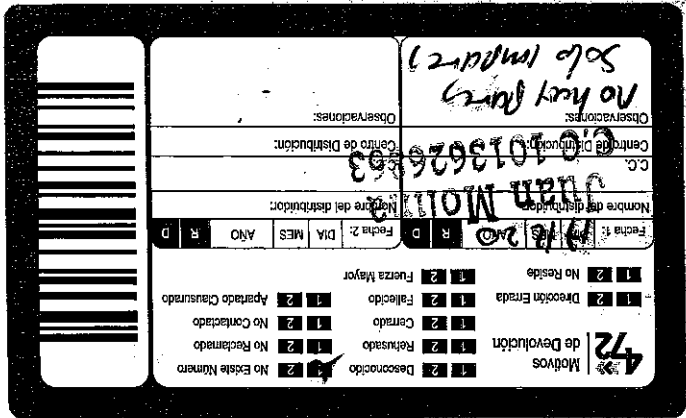 472
Motivos de Devolución
1 2 Desconocido
1 2 Rehusado
1 2 Cerrado
1 2 Fallecido
1 2 Fuerza Mayor
1 2 No Existe Número
1 2 No Reclamado
1 2 No Contactado
1 2 Apartado Clausurado
1 2 Dirección Errada
1 2 No Reside
Fecha 1: DIA MES AÑO R D
Fecha 2: DIA MES AÑO R D
Nombre del distribuidor:
Juan Molina
Nombre del distribuidor:
C.C.
C.C 1013626963
Centro de Distribución:
Centro de Distribución:
Observaciones:
No hay pares
Solo impares
Observaciones: